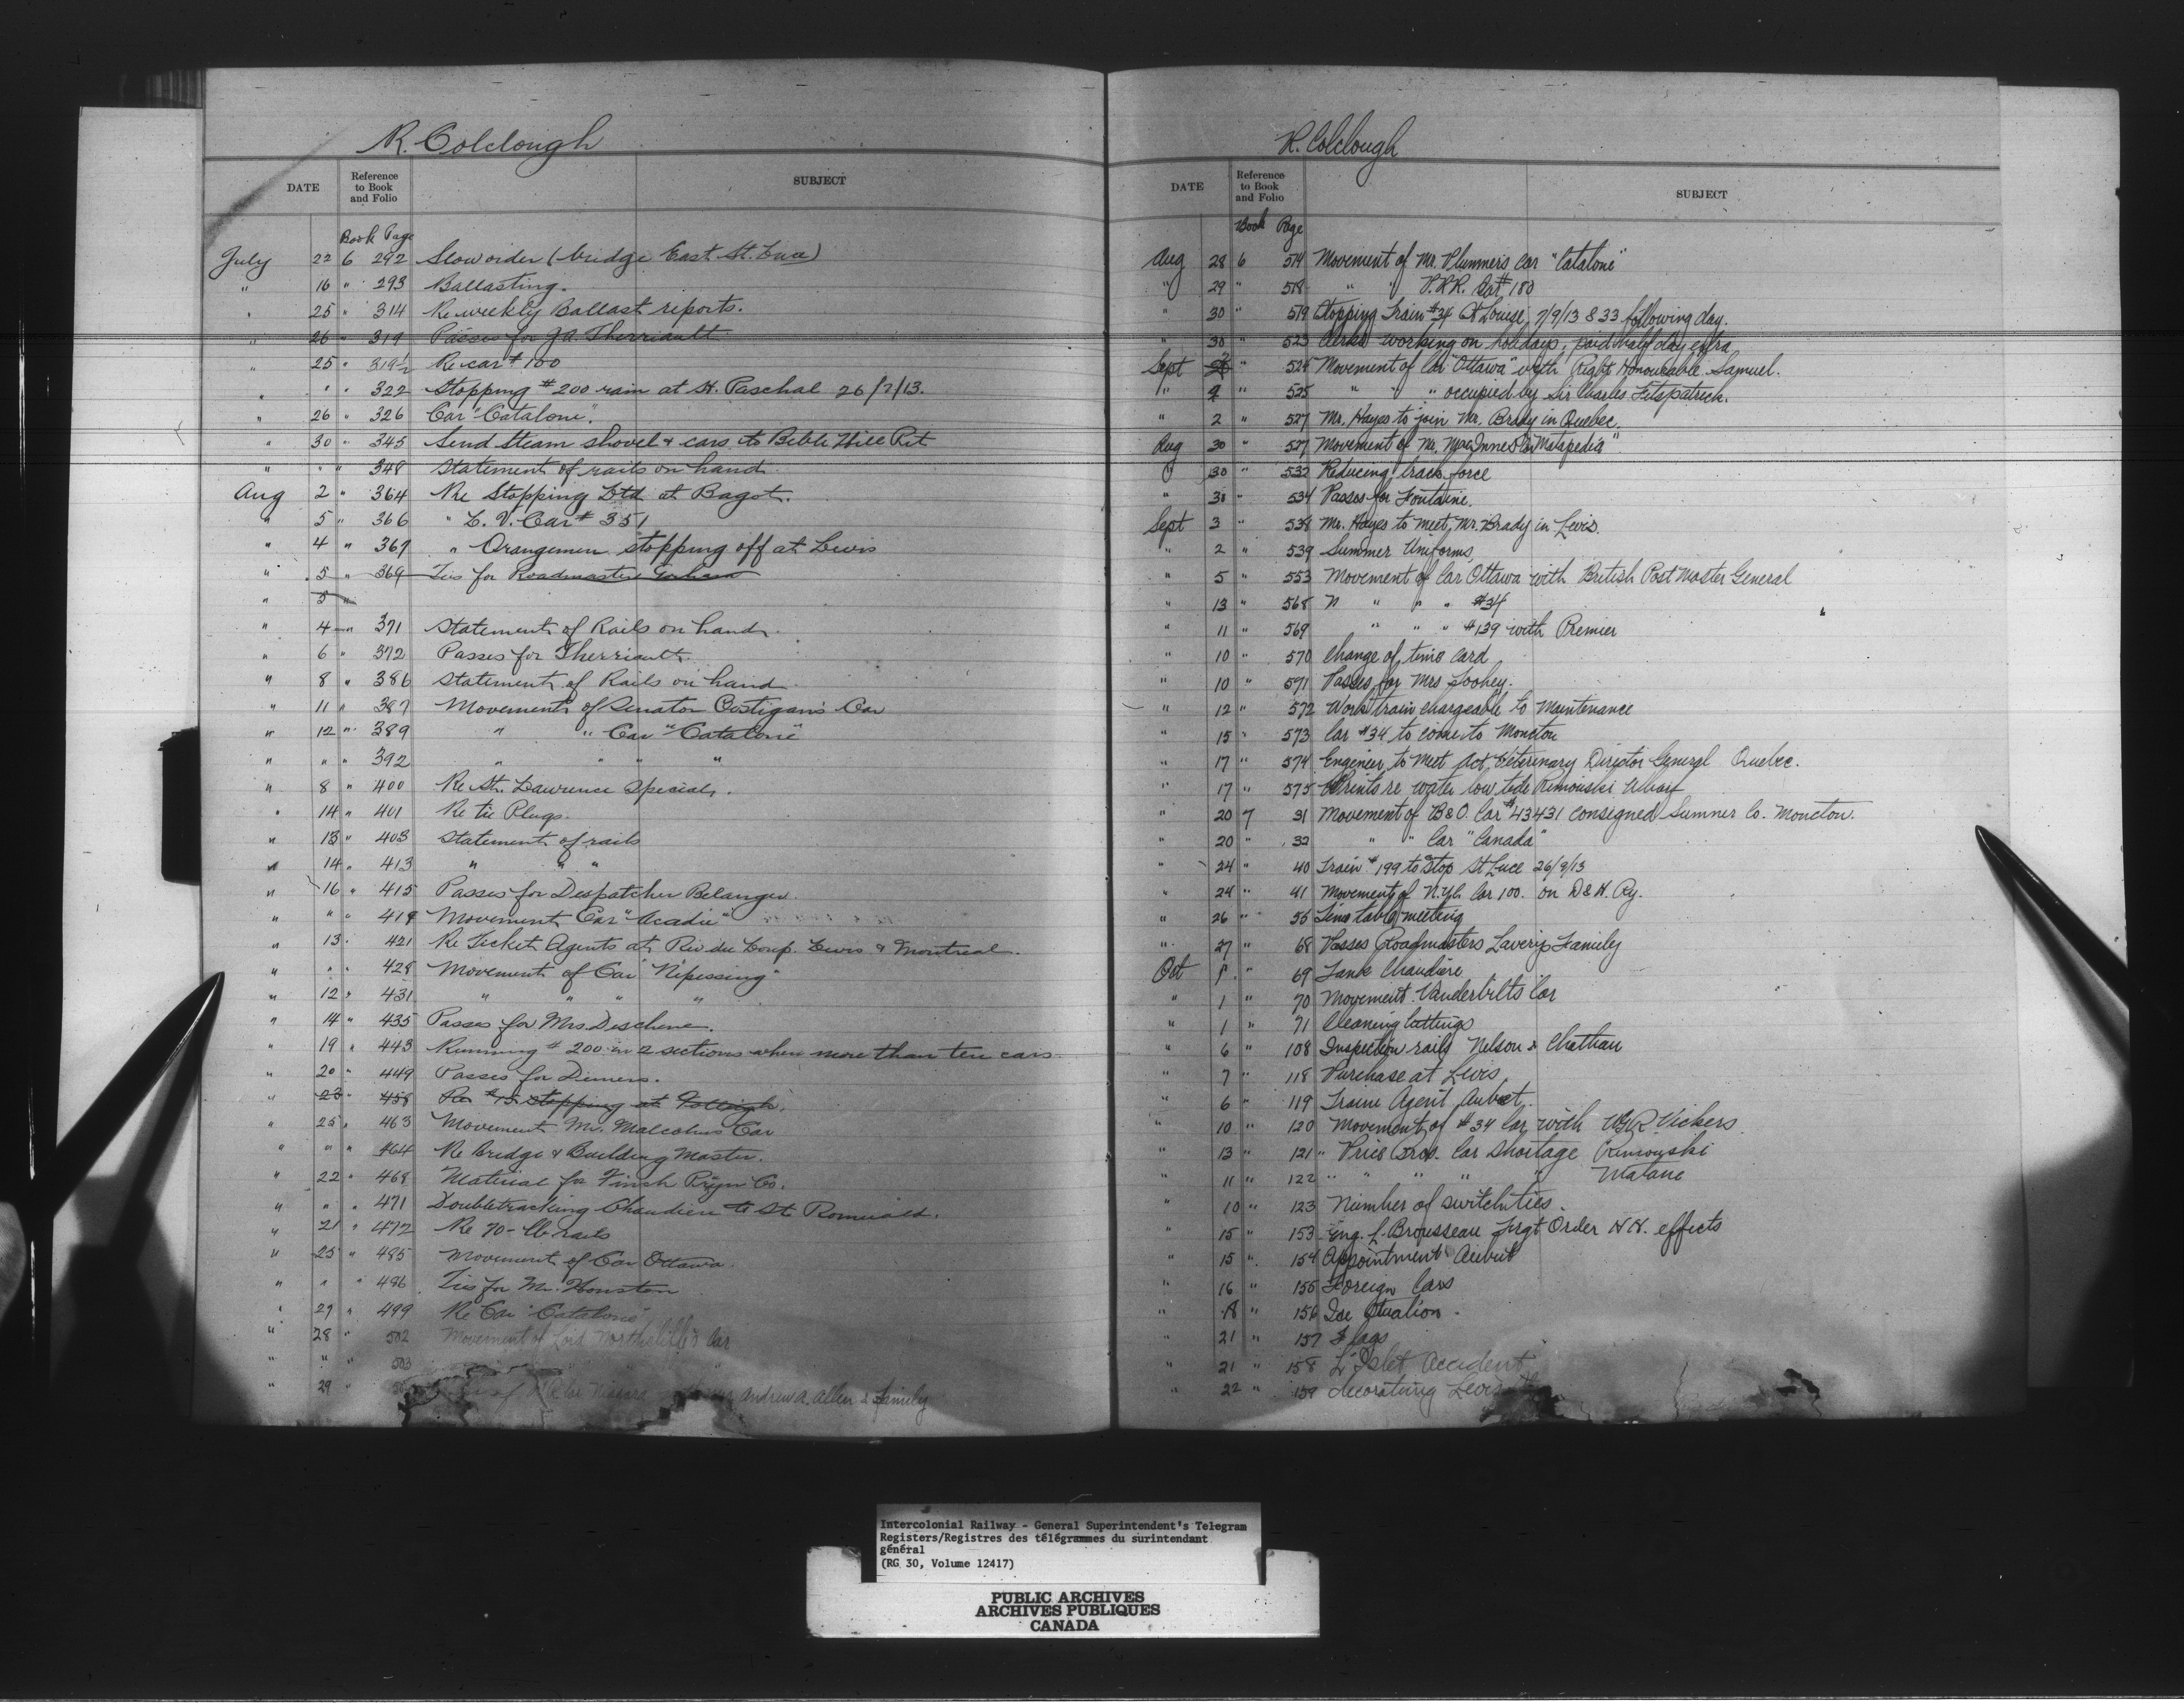 R. Colclough
DATE Reference to Book and Folio SUBJECT
Book Page
July 22 6 292 Slow order (bridge East St. Luce)
" 16 " 293 Ballasting.
" 25 " 314 Re weekly Ballast reports.
" 26 " 319 Passes for J.A. Therriault
" 25 " 319½ Re car # 100
" " " 322 Stopping # 200 rain at St. Paschal 26/7/13.
" 26 " 326 Car "Catalone".
" 30 " 345 Send steam shovel & cars to Bible Hill Pit
" " " 348 Statement of rails on hand
Aug 2 " 364 Re Stopping Ltd at Bagot.
" 5 " 366 " L. V. Car # 351
" 4 " 367 " Orangemen stopping off at Levis
" 5 " 369 Ties for Roadmaster
" 5 "
" 4 " 371 Statement of Rails on hand.
" 6 " 372 Passes for Therriault.
" 8 " 386 Statement of Rails on hand
" 11 " 387 Movement of Senator Costigan's Car
" 12 " 389 " " Car "Catalone"
" " " 392 " " " "
" 8 " 400 Re St. Lawrence Special.
" 14 " 401 Re tie Plugs.
" 13 " 403 Statement of rails
" 14 " 413 " " "
" 16 " 415 Passes for Despatcher Belanger.
" " " 419 Movement Car "Acadie"
" 13 " 421 Re Ticket Agents at Riv du Loup. Levis & Montreal.
" " " 428 Movement of Car "Nipissing"
" 12 " 431 " " " "
" 14 " 435 Passes for Mrs. Deschene.
" 19 " 443 Running # 200 in 2 sections when more than ten cars
" 20 " 449 Passes for Demers.
" 23 458 Re # 15 stopping at
" 25 " 463 Movement Mr. Malcolms Car
" " " 464 Re Bridge & Building Master.
" 22 " 468 Material for Finch Pryn Co.
" " " 471 Doubletracking Chaudiere to St Romuald.
" 21 " 472 Re 70-lb rails
" 25 " 485 Movement of Car Ottawa.
" " " 486 Ties for Mr. Houston
" 27 " 499 Re Car "Catalone"
" 28 " 502 Movement of Lord Northcliffe's Car
" " " 503
" 29 " Niagara Andrew A. Allen & family
R. Colclough
DATE Reference to Book and Folio SUBJECT
Book Page
Aug 28 6 514 Movement of Mr. Plummers Car "Catalone"
" 29 " 518 " " P.R.R. Car # 180
" 30 " 519 Stopping Train #34 St Louise, 7/9/13 & 33 following day.
" 30 " 523 Clerks working on holidays, paid half day extra
Sept 2 " 524 Movement of Car "Ottawa" with Right Honourable Samuel.
" 4 " 525 " " " occupied by Sir Charles Fitzpatrick.
" 2 " 527 Mr. Hayes to join Mr. Brady in Quebec.
Aug 30 " 527 Movement of Mr. MacInnes Car "Matapedia"
" 30 " 532 Reducing track force
" 30 " 534 Passes for Fontaine.
Sept 3 " 538 Mr. Hayes to meet Mr. Brady in Levis.
" 2 " 539 Summer Uniforms
" 5 " 553 Movement of Car Ottawa with British Post Master General
" 13 " 568 " " " " #34
" 11 " 569 " " " #139 with Premier
" 10 " 570 Change of time card
" 10 " 571 Passes for Mrs Toohey.
" 12 " 572 Work train chargeable to Maintenance
" 15 " 573 Car #34 to come to Moncton
" 17 " 574 Engineer to Meet Act. Veterinary Director General Quebec.
" 17 " 575 Prints re water low tide Rimouski Wharf
" 20 7 31 Movement of B&O. Car #43431 consigned Sumner Co. Moncton.
" 20 " 32 " " Car "Canada"
" 24 " 40 Train # 199 to stop St Luce 26/9/13
" 24 " 41 Movement of N.Y.C. Car 100. on D & H. Ry.
" 26 " 55 Time table meeting
" 27 " 68 Passes Roadmasters Laverys Family
Oct 1 " 69 Tank Chaudiere
" 1 " 70 Movement Vanderbilts Car
" 1 " 71 Cleaning Cuttings
" 6 " 108 Inspection rails Nelson & Chatham
" 7 " 118 Purchase at Levis
" 6 " 119 Traine Agent Aubut.
" 10 " 120 Movement of #34 Car with Vickers
" 13 " 121 " Price Bros. Car Shortage Rimouski
" 11 " 122 " " " " Matane
" 10 " 123 Number of switchties.
" 15 " 153 Eng. L. Brousseau Frgt Order H H. effects
" 15 " 154 Appointment Aubut
" 16 " 155 Foreign Cars
" 18 " 156 Ice
" 21 " 157 Flags
" 21 " 158 L'Islet Accident
" 22 " 159 decorating Levis
Intercolonial Railway - General Superintendent's Telegram
Registers/Registres des télégrammes du surintendant
général
(RG 30, Volume 12417)
PUBLIC ARCHIVES
ARCHIVES PUBLIQUES
CANADA